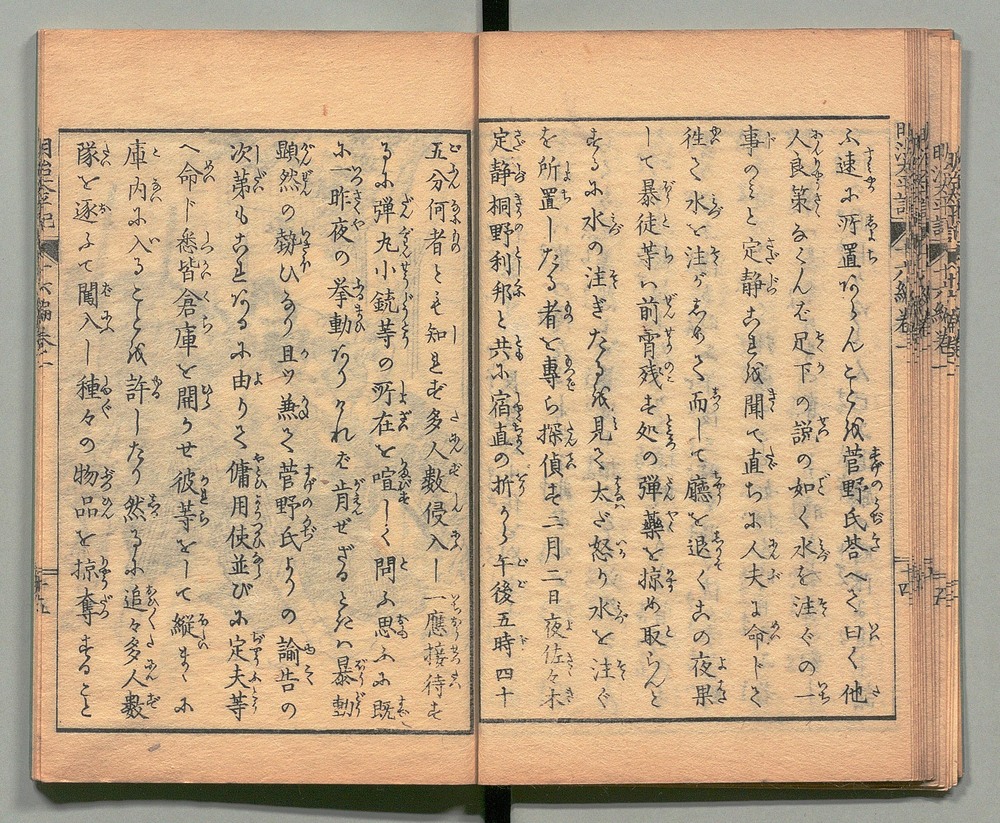 ふ速に所置あらんことを菅野氏答へて曰く他
人良策なくんば足下の説の如く水を注ぐの一
事のミと定静これを聞て直ちに人夫に命じて
徃て水を注がしめて而して廳を退くこの夜果
して暴徒等ハ前宵残す処の弾藥を掠め取らんと
するに水の注ぎたるを見て太だ怒り水を注ぐ
を所置したる者を專ら探偵す二月二日夜佐々木
定静桐野利邦と共に宿直の折から午後五時四十
五分何者とも知れず多人數侵入し一應接待す
るに弾丸小銃等の所在を喧しく問ふ思ふに既
に一昨夜の挙動ありければ肯ぜざるときハ暴動
顕然の勢ひなり且ツ兼て菅野氏よりの諭告の
次第もこれあるに由りて傭用使並びに定夫等
へ命じ悉皆倉庫を開かせ彼等をして縦まゝに
庫内に入ることを許したり然るに追々多人數
隊を逐ふて闖入し種々の物品を掠奪すること
明治太平記
十六編巻一
十五
明治太平記
十六編巻一
十四